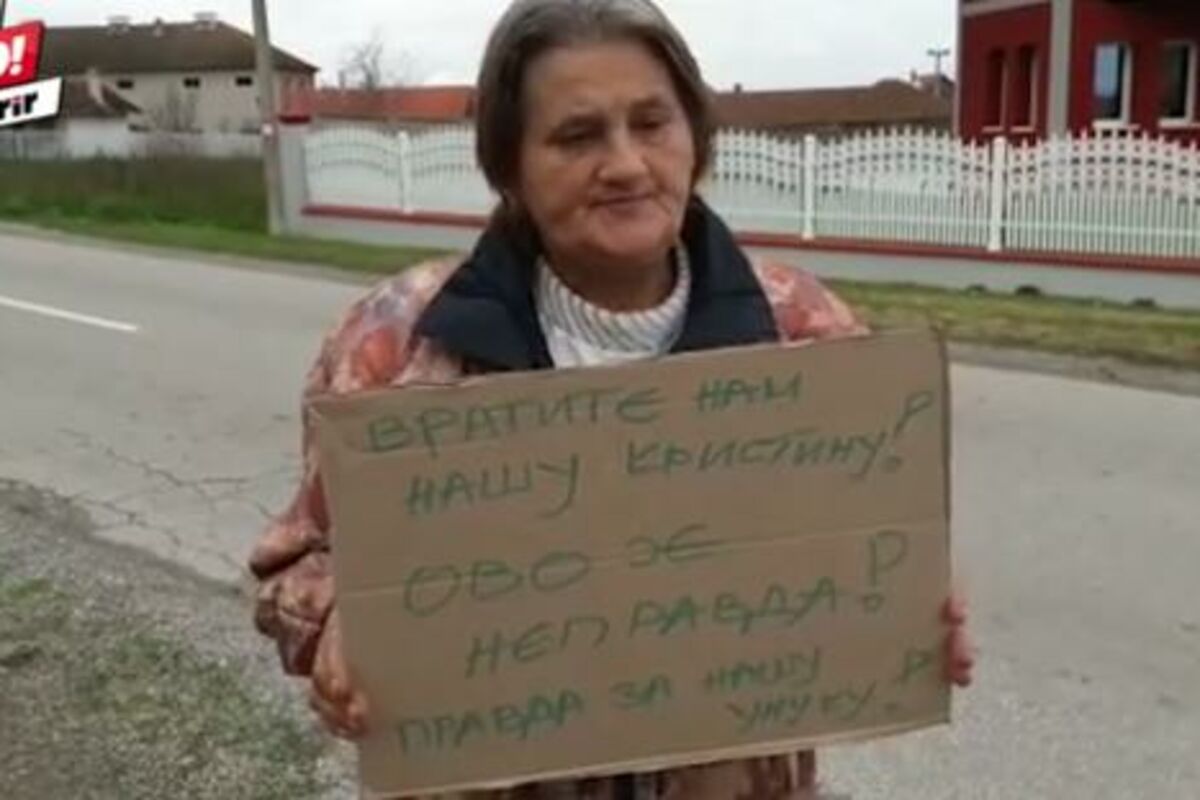 O!
rir
ВРАТИТЕ НАМ
НАШУ КРИСТИНУ!
ОВО ЈЕ
НЕПРАВДА!
ПРАВДА ЗА НАШУ
УНУКУ!